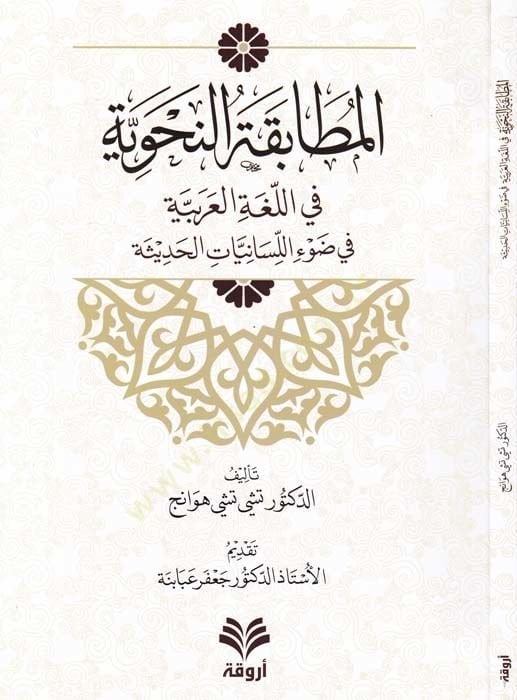 المُطَابَقَةُ النَّحْوِيَّة
في اللُّغَةِ العَرَبيَّة
في ضَوْءِ اللِّسَانِيَّاتِ الحَدِيثَة
تَأليفُ
الدّكتُور تشي تشي هوَانج
تَقديْمُ
الأستَاذ الدكتُور جَعفَر عبَابنَة
أروقة
المُطَابَقَةُ النَّحْوِيَّة في اللُّغَةِ العَرَبيَّة في ضَوْءِ اللِّسَانِيَّاتِ الحَدِيثَة
الدّكتُور تشي تشي هوَانج
أروقة